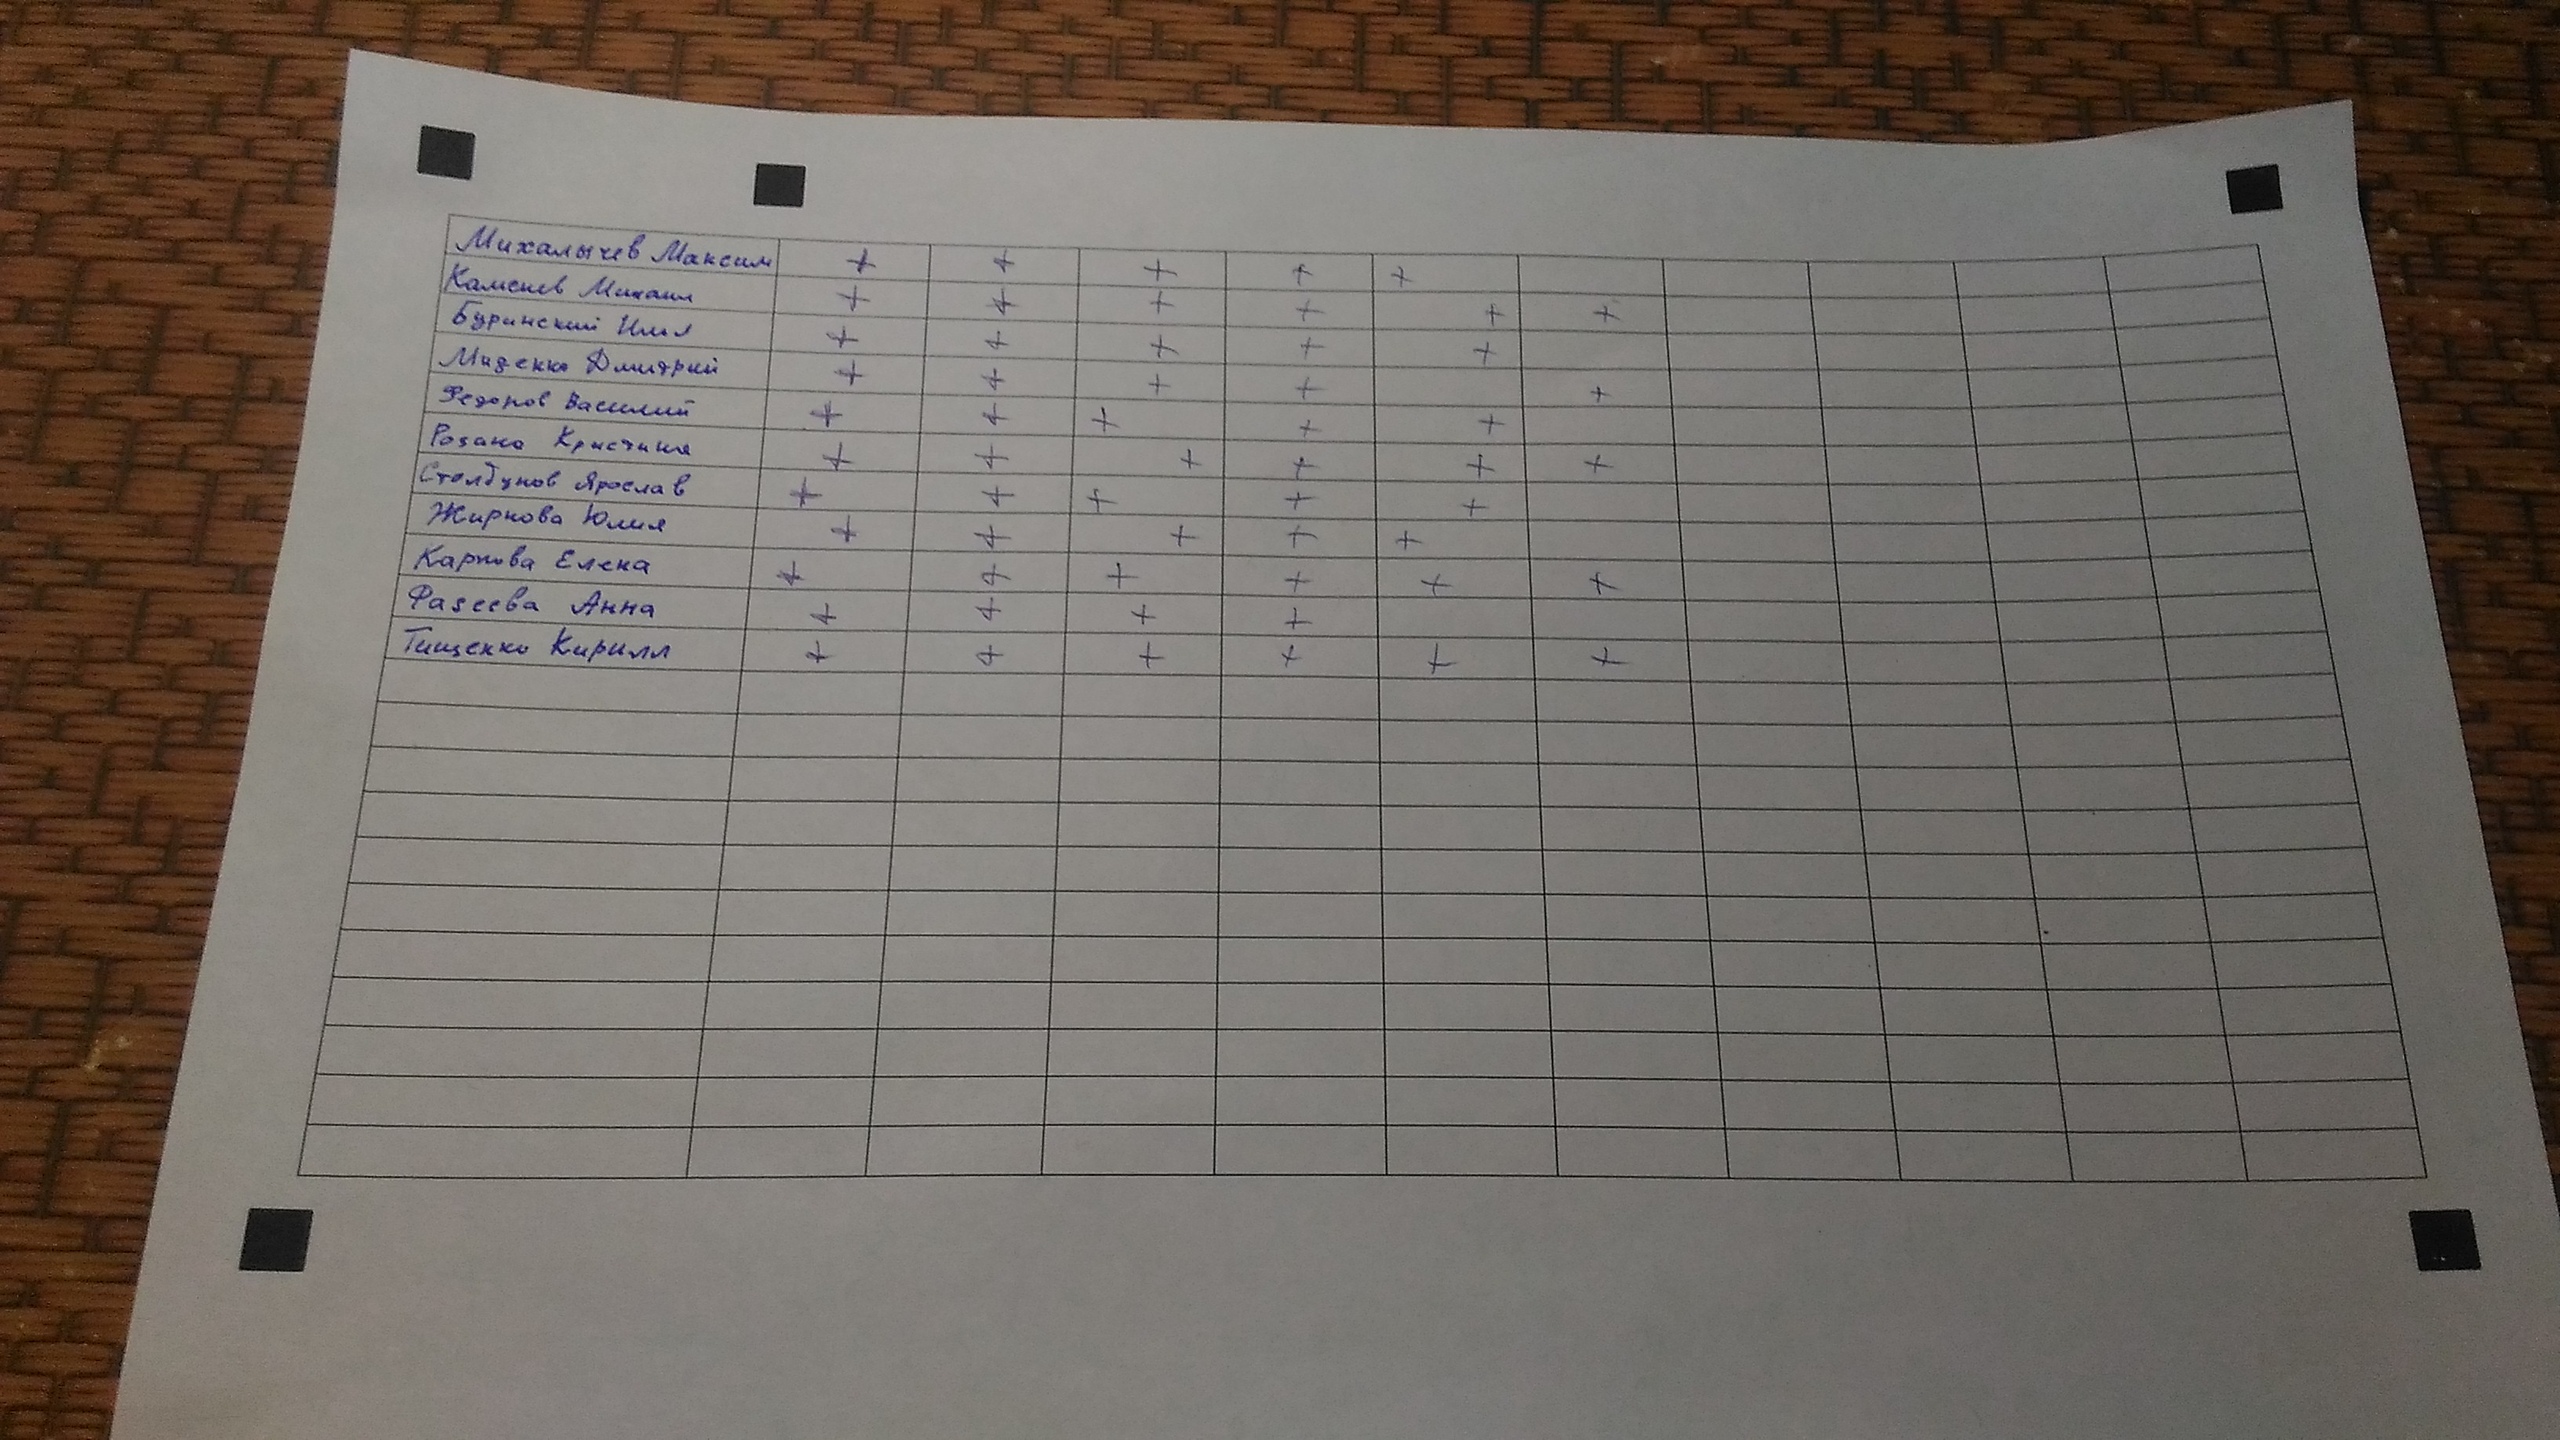 Михалычев Максим + + + + +
Каменев Михаил + + + + + +
Буринский Илья + + + + +
Миденко Дмитрий + + + + +
Федоров Василий + + + + +
Кристина + + + + + +
Столбунов Ярослав + + + + +
Жиркова Юлия + + + + +
Карпова Елена + + + + + +
Фадеева Анна + + + +
Тищенко Кирилл + + + + + +